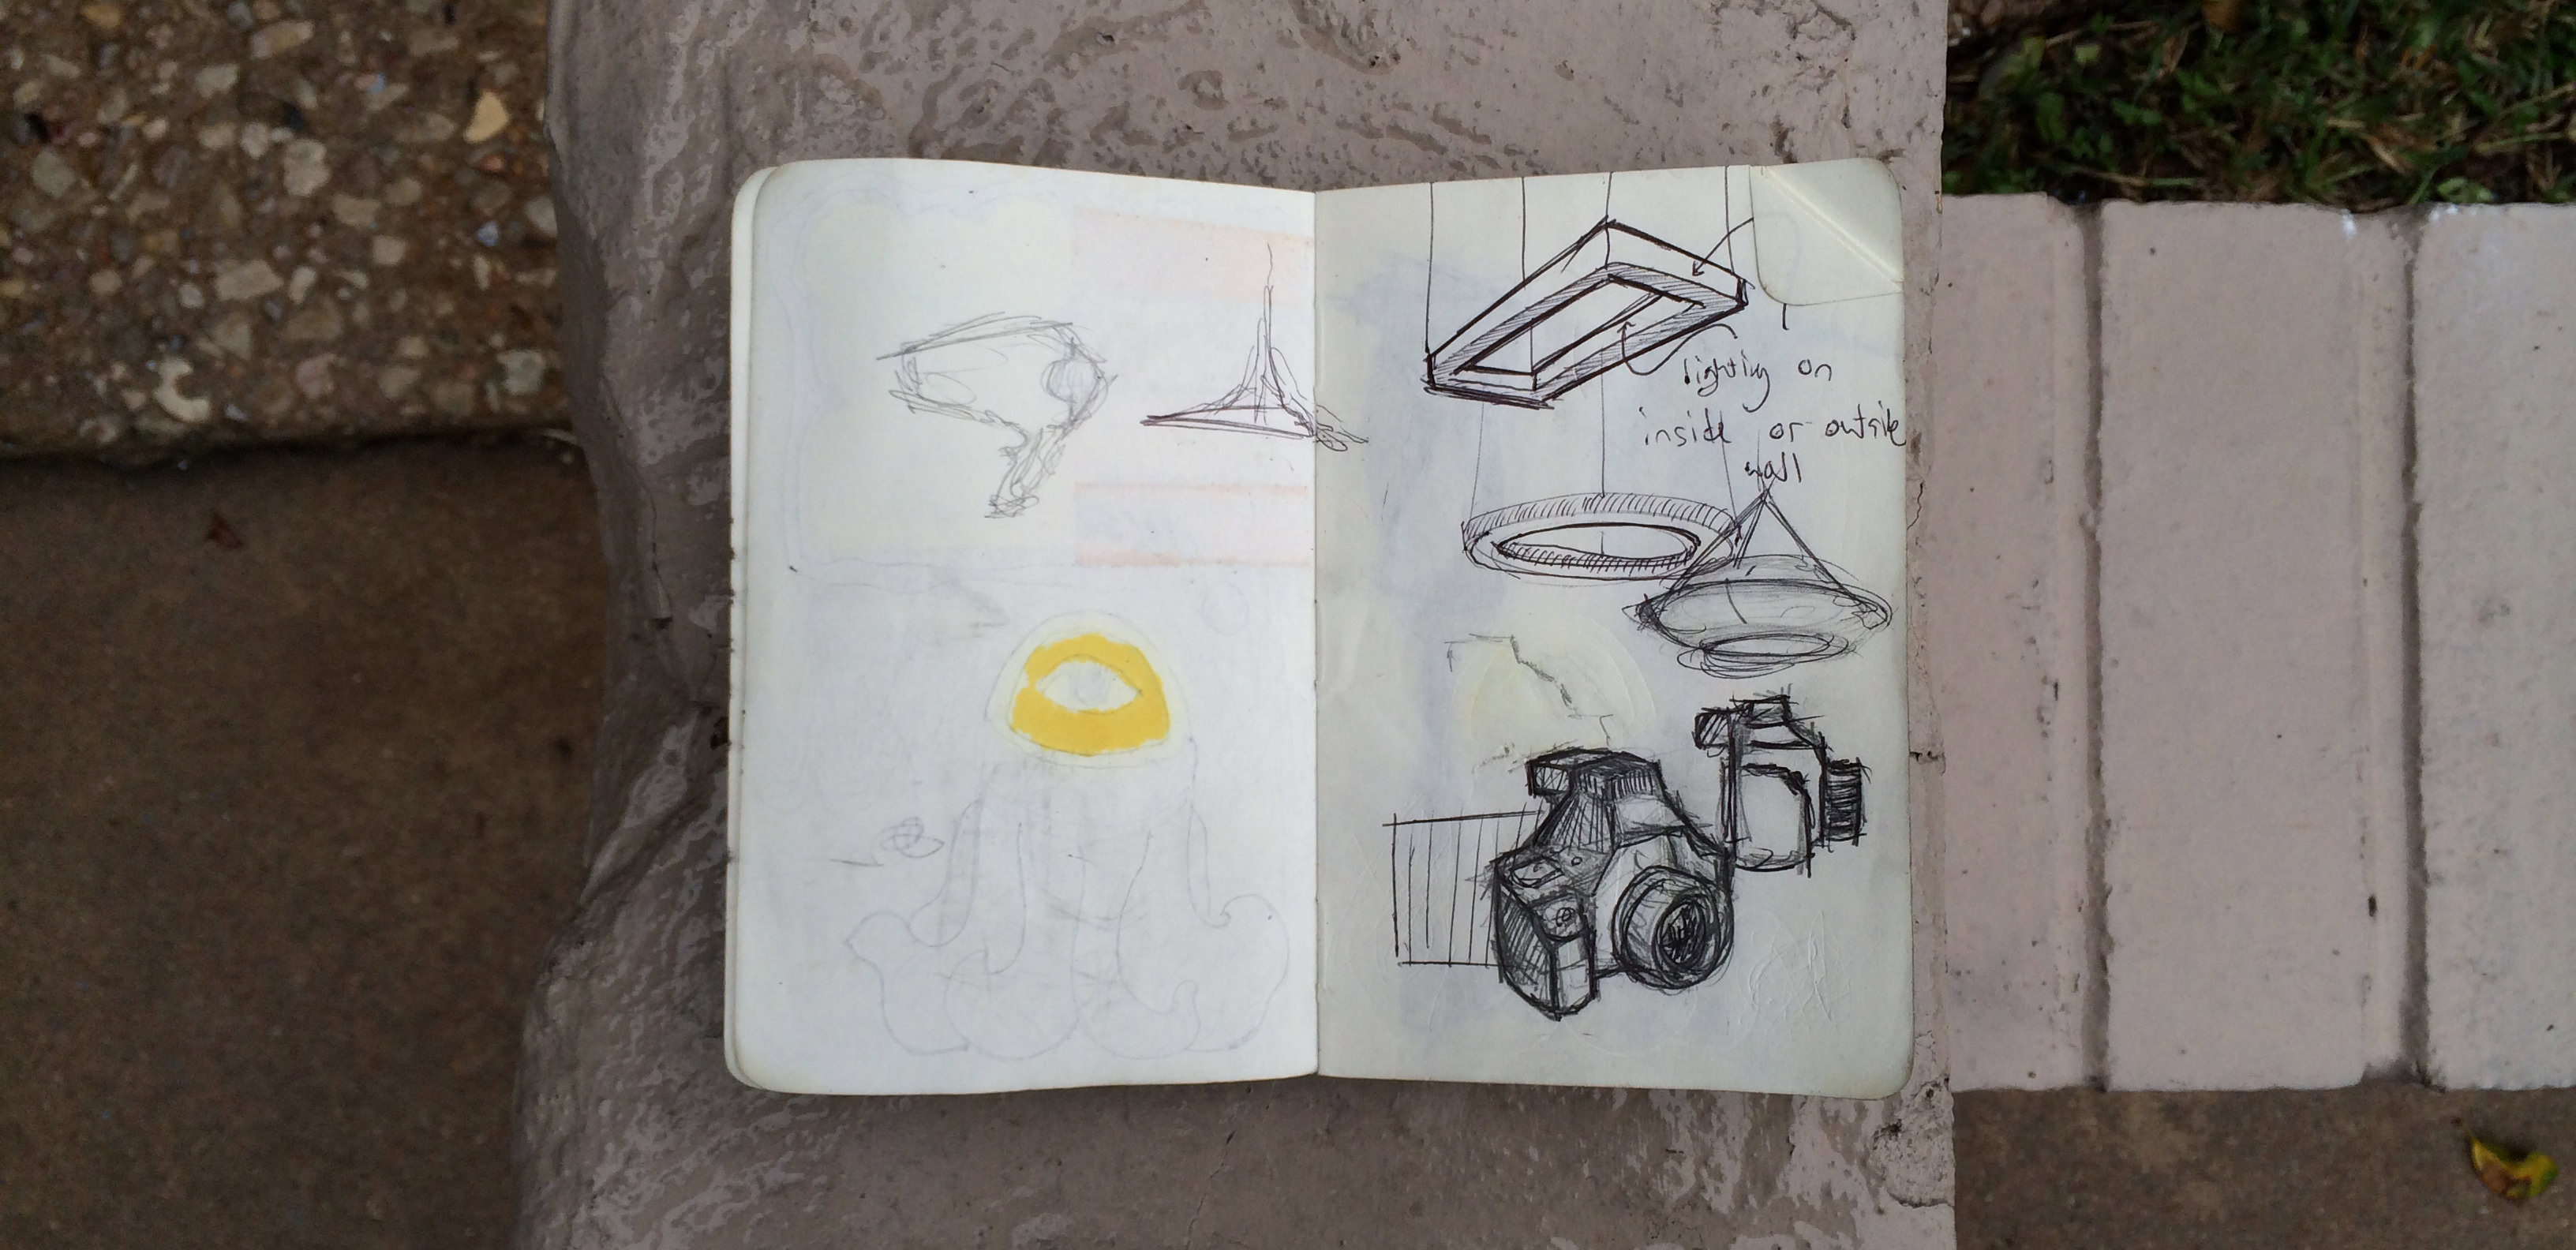 lighting on
inside or outside
wall